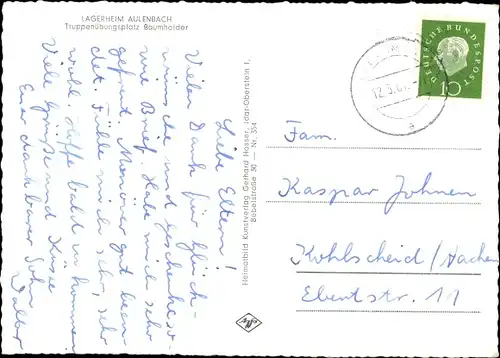 LAGERHEIM AULENBACH
Truppenübungsplatz Baumholder
Liebe Eltern!
Vielen Dank für Glück-
wünsche und Geschenke so-
wie Brief. Habe mich sehr
gefreut. Manöver gut been-
det. Fühle mich sehr, sehr
wohl. Hoffe bald zu kommen
Viele Grüße und Küsse
Euer dankbarer Sohn
Heimatbild Kunstverlag Gerhard Hosser, Idar-Oberstein 1,
Bebelstraße 30 — Nr. 354
DEUTSCHE BUNDESPOST
10
12.5.61
a
Fam.
Kaspar Johnen
Kohlscheid/Aachen
Ebertstr. 11